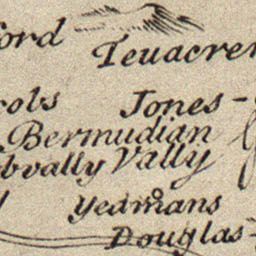 ord Teuacren
cols Jones
Bermudian
bvally Vally
Yeamans
Douglas